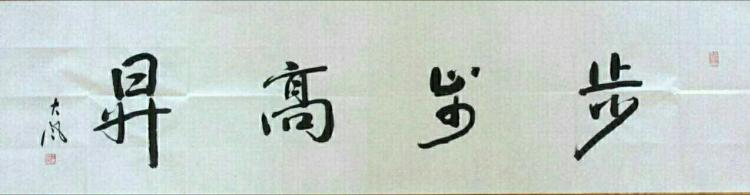 步步高昇
大风